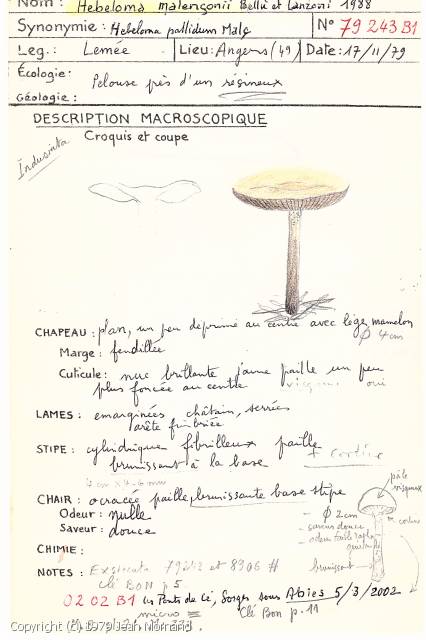 Nom : Hebeloma malençonii Bellù et Lanzoni 1988
Synonymie : Hebeloma pallidum Malç N° 79 243 B1
Leg. : Lemée Lieu : Angers (49) Date : 17/11/79
Écologie : Pelouse près d'un résineux
Géologie :
DESCRIPTION MACROSCOPIQUE
Croquis et coupe
Indusiata
CHAPEAU : plan, un peu déprimé au centre avec léger mamelon
Ø 4 cm
Marge : fendillée
Cuticule : nue brillante jaune paille un peu
plus foncée au centre oui
LAMES : emarginées châtain, serrées
arête fimbriée
STIPE : cylindrique fibrilleux paille
brunissant à la base + cortine
CHAIR : ocracée paille, brunissante base stipe
Odeur : nulle
Saveur : douce
pâle
visqueux
cortine
- Ø 2 cm
- saveur douce
- odeur faible
brunissant
CHIMIE :
NOTES : Exsiccata et 8906 #
Clé BON p. 5
02 02 B1 les Ponts de Cé, Sorges sous Abies 5/3/2002
micro = Clé Bon p. 11
Copyright (c) 1979 Jean Mornand